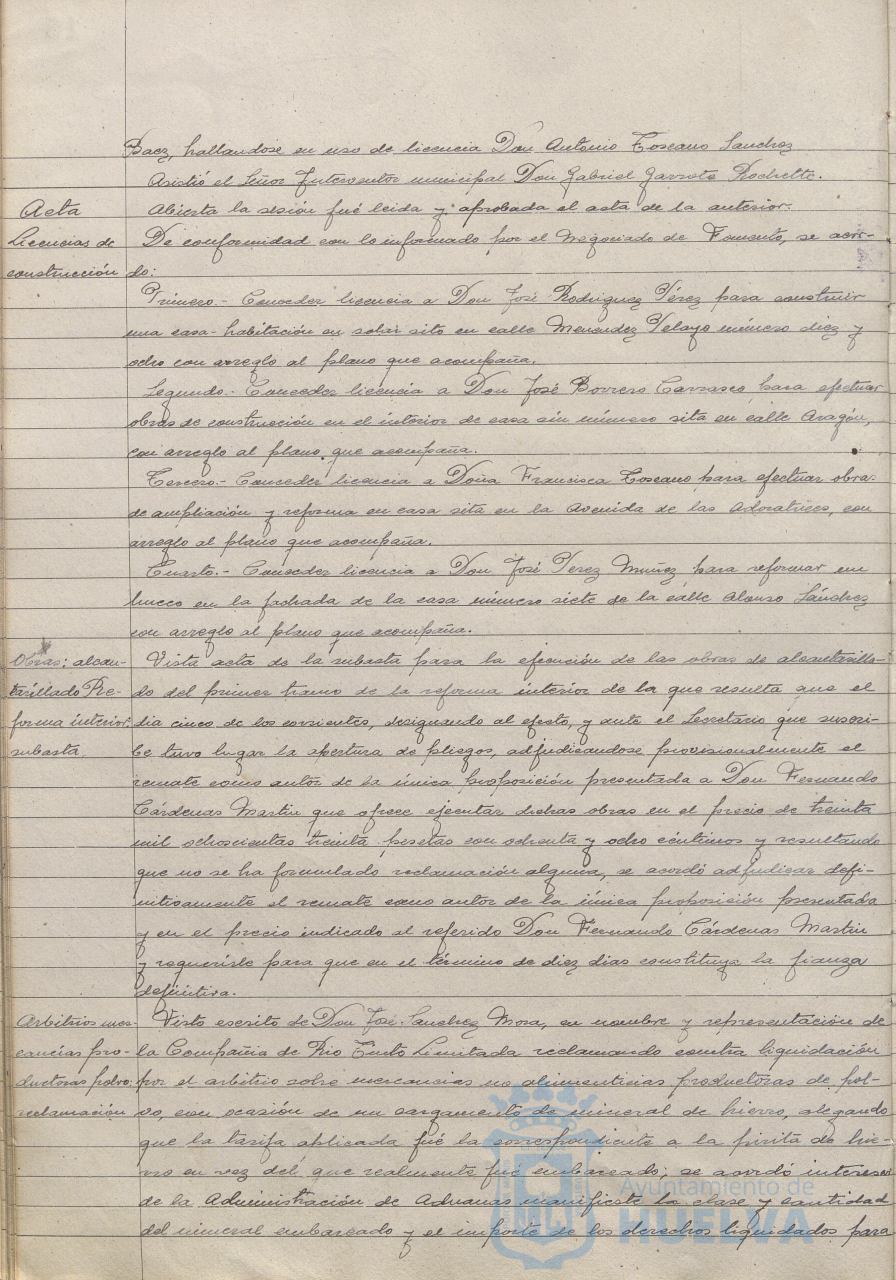 Baez, hallandose en uso de licencia Don Antonio Toscano Sanchez
Asistió el Señor Interventor municipal Don Gabriel Garrote Rochette.
Acta
Abierta la sesión fué leida y aprobada el acta de la anterior.
Licencias de construcción
De conformidad con lo informado por el Negociado de Fomento, se acor-
do:
Primero.- Conceder licencia a Don José Rodriguez Pérez para construir
una casa-habitación en solar sito en calle Menendez Pelayo número diez y
ocho con arreglo al plano que acompaña.
Segundo.- Conceder licencia a Don José Borrero Carrasco para efectuar
obras de construcción en el interior de casa sin número sita en calle Aragón,
con arreglo al plano que acompaña.
Tercero.- Conceder licencia a Doña Francisca Toscano para efectuar obra
de ampliación y reforma en casa sita en la Avenida de las Adoratrices, con
arreglo al plano que acompaña.
Cuarto.- Conceder licencia a Don José Perez Muñoz para reformar un
hueco en la fachada de la casa número siete de la calle Alonso Sánchez
con arreglo al plano que acompaña.
Obras: alcan-
tarillado Re-
forma interior:
subasta.
Vista acta de la subasta para la ejecución de las obras de alcantarilla-
do del primer tramo de la reforma interior de la que resulta que el
dia cinco de los corrientes, designando al efecto, y ante el Secretario que suscri-
be tuvo lugar la apertura de pliegos, adjudicandose provisionalmente el
remate como autor de la única proposición presentada a Don Fernando
Cárdenas Martin que ofrece ejecutar dichas obras en el precio de treinta
mil ochocientas treinta pesetas con ochenta y ocho céntimos y resultando
que no se ha formulado reclamación alguna, se acordó adjudicar defi-
nitivamente el remate como autor de la única proposición presentada
y en el precio indicado al referido Don Fernando Cárdenas Martin
y requerirle para que en el término de diez dias constituya la fianza
definitiva.
Arbitrios mer-
cancías pro-
ductoras polvo:
reclamación
Visto escrito de Don José Sanchez Mora, en nombre y representación de
la Compañia de Rio Tinto Limitada reclamando contra liquidación
por el arbitrio sobre mercancias no alimenticias productoras de pol-
vo, con ocasión de un cargamento de mineral de hierro, alegando
que la tarifa aplicada fué la correspondiente a la pirita de hie-
rro en vez del que realmente fué embarcado; se acordó interesar
de la Administración de Aduanas manifieste la clase y cantidad
del mineral embarcado y el importe de los derechos liquidados para
Ayuntamiento de
HUELVA